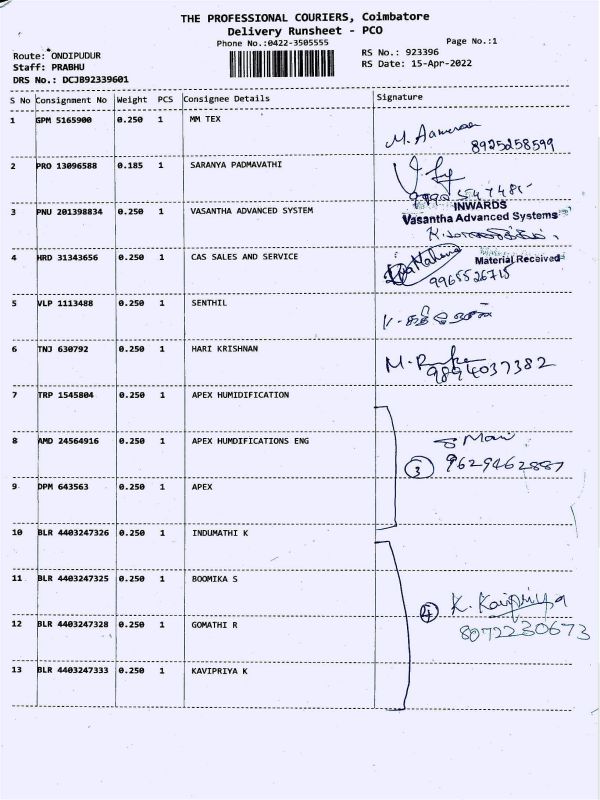 THE PROFESSIONAL COURIERS, Coimbatore
Delivery Runsheet - PCO
Phone No.:0422-3505555
Page No.:1
Route: ONDIPUDUR
RS No.: 923396
Staff: PRABHU
RS Date: 15-Apr-2022
DRS No.: DCJB92339601
S No Consignment No Weight PCS Consignee Details Signature
1 GPM 5165900 0.250 1 MM TEX
8925258599
2 PRO 13096588 0.185 1 SARANYA PADMAVATHI
INWARDS
3 PNU 201398834 0.250 1 VASANTHA ADVANCED SYSTEM Vasantha Advanced Systems
4 HRD 31343656 0.250 1 CAS SALES AND SERVICE Material Received
9965526715
5 VLP 1113488 0.250 1 SENTHIL
6 TNJ 630792 0.250 1 HARI KRISHNAN
9894037382
7 TRP 1545804 0.250 1 APEX HUMIDIFICATION
8 AMD 24564916 0.250 1 APEX HUMDIFICATIONS ENG
3 9629462887
9 DPM 643563 0.250 1 APEX
10 BLR 4403247326 0.250 1 INDUMATHI K
11 BLR 4403247325 0.250 1 BOOMIKA S
4 K. Kavipriya
12 BLR 4403247328 0.250 1 GOMATHI R
8072230673
13 BLR 4403247333 0.250 1 KAVIPRIYA K